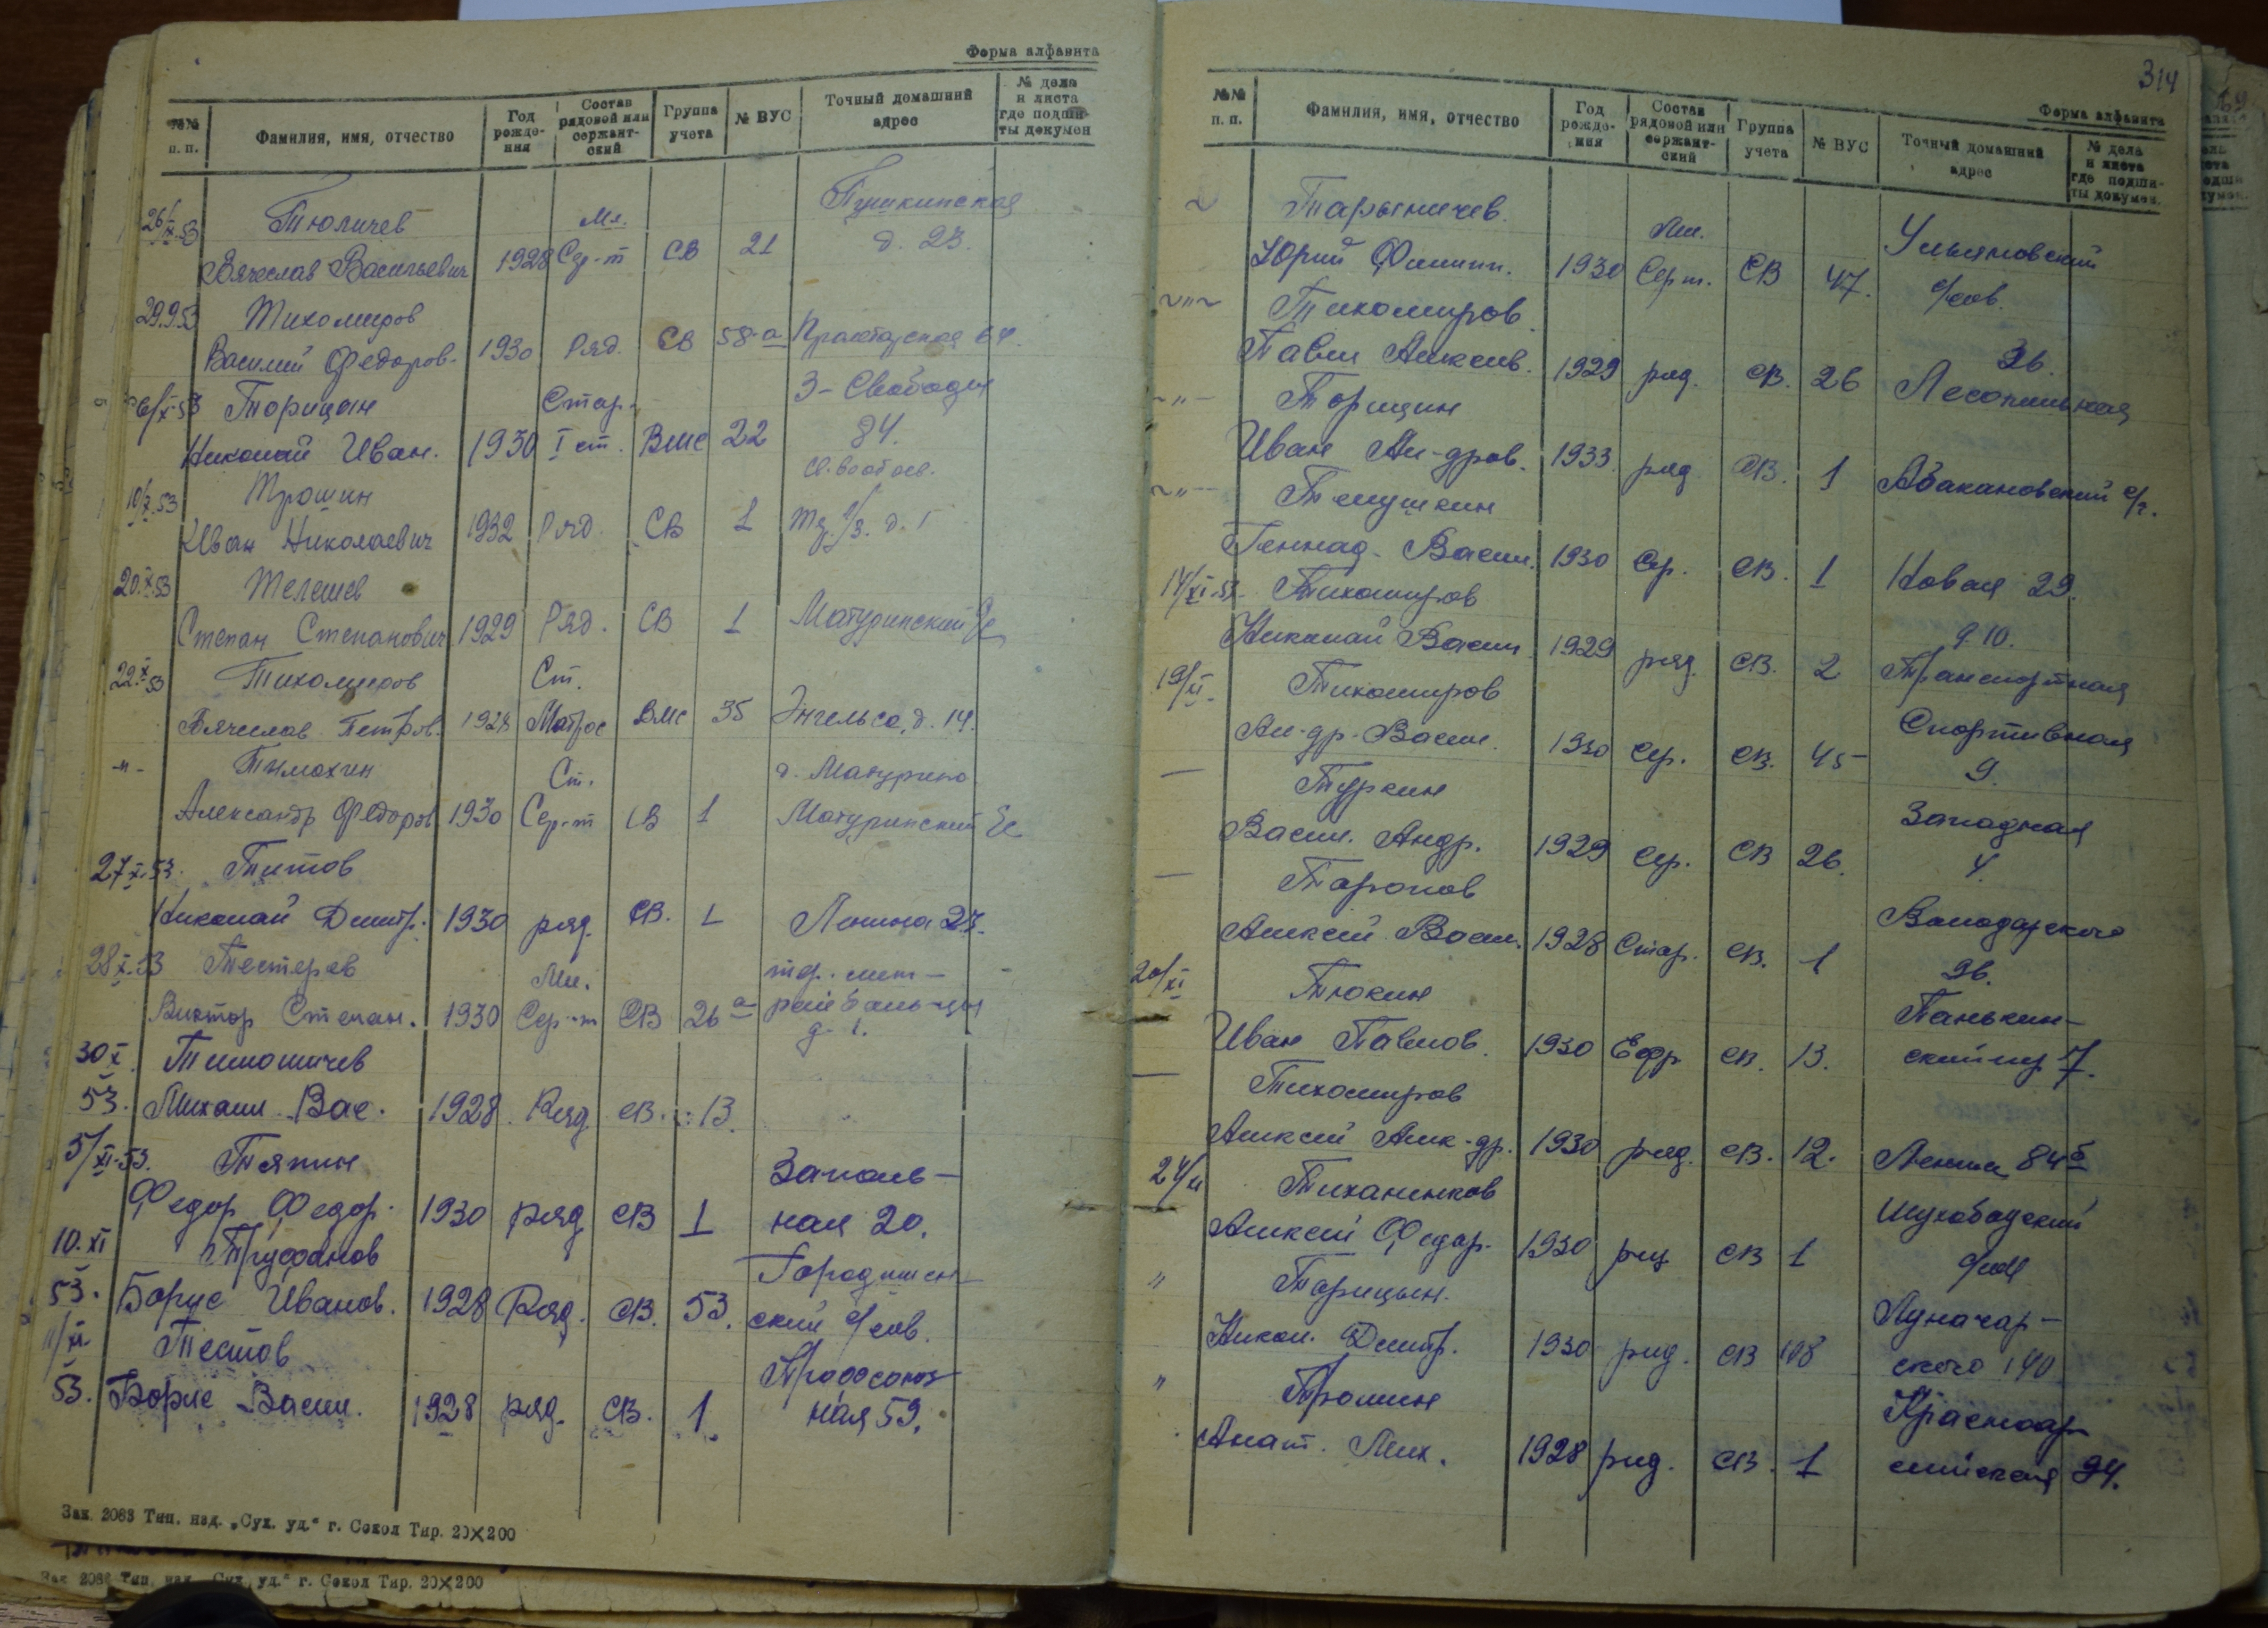 Форма алфавита
№№ п. п. Фамилия, имя, отчество Год рожде-ния Состав рядовой или сержант-ский Группа учета № ВУС Точный домашний адрес № дела и листа где подши-ты докумен
26/IX.53 Тюличев Мл. Пушкинская
Вячеслав Васильевич 1928 Сер-т СВ 21 д. 23.
29.9.53 Тихомиров
Василий Федоров. 1930 Ряд. СВ 58-а 
Торицын Стар. Свободы
Николай Иван. 1930 I ст. Вмс 22 84.
10/X.53 Трошин
Иван Николаевич 1932 Ряд. СВ 1 д. 1
20.X.53 Телешев
Степан Степанович 1929 Ряд. СВ 1 Матуринский
22.X.53 Тихомиров Ст.
Вячеслав Петров. 1928 Матрос Вмс 35 Энгельса, д. 14.
-"- Тимохин Ст. д. Матурино.
Александр Федоров 1930 Сер-т СВ 1 Матуринский
27.X.53. Титов
Николай Дмитр. 1930 ряд. СВ. 1 Ленина 23.
28.X.53 Тестерев Мл.
Виктор Степан. 1930 Сер-т СВ 26а
д. 1.
30.X. Тимошичев
53. Михаил Вас. 1928. Ряд. св. 13.
5/XI-53. Тяпин Заполь-
Федор Федор. 1930 ряд СВ 1 ная 20.
10.XI Труфанов Городищен-
53. Борис Иванов. 1928 Ряд. СВ. 53. ский с/сов.
11/XI. Тестов Профсоюз-
53. Борис Васил. 1928 ряд. СВ. 1. ная 59.
Зак. 2083 Тип. изд. „Сух. уд.“ г. Сокол Тир. 20×200
Зак. 2083 Тип. изд. „Сух. уд.“ г. Сокол Тир. 20×200
314
Форма алфавита
№№ п. п. Фамилия, имя, отчество Год рожде-ния Состав рядовой или сержант-ский Группа учета № ВУС Точный домашний адрес № дела и листа где подши-ты докумен.
Тарыничев. Мл. Ульяновский
Юрий Филипп. 1930 Серт. СВ 47. с/сов.
~"~ Тихомиров. 36.
Павел Алексеев. 1929 ряд. СВ. 26 Лесопильная
-"- Торицын
Иван Ал-дров. 1933. ряд. СВ. 1 Абакановский с/с.
~"- Темушкин
Геннад. Васил. 1930 Сер. СВ. 1 Новая 29.
14/XI.53. Тихомиров д. 10.
Николай Васил. 1929 ряд. СВ. 2 Транспортная
19/XI. Тихомиров Спортивная
Ал-др. Васил. 1930 Сер. СВ. 45 9.
— Туркин Западная
Васил. Андр. 1929 Сер. СВ 26. 4.
— Таропов Володарского
Алексей Васил. 1928 Стар. СВ. 1 96.
20/XI Тюкин Панькин-
Иван Павлов. 1930 Ефр СВ. 13. ский 7.
— Тихомиров
Алексей Алек-др. 1930 ряд. СВ. 12. Ленина 84б
24/11 Тиханенков Шухободский
Алексей Федор. 1930 ряд СВ 1 с/сов
" Торицын. Луначар-
Никол. Дмитр. 1930 ряд. СВ 108 ского 140
" Трошин Красноар-
Анат. Мих. 1928 ряд. СВ. 1 мейская 94.